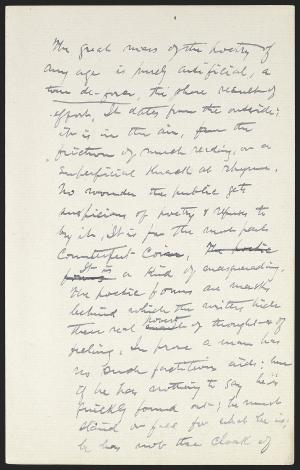 The great mass of the poetry of
any age is purely artificial, a
tour de-force, the sheer result of
effort. It dates from the outside;
it is in the air, from the
friction of much reading, or a
superficial knack at rhyme.
No wonder the public gets
suspicious of poetry & refuses to
buy it. It is for the most part
Counterfeit Coin. The poetic
forms It is a kind of masquerading.
The poetic forms are masks
behind which the writers hide
their real poverty of thought & of
feeling. In prose a man has
no such factitious aids; here
if he has nothing to say he is
quickly found out; he must
stand or fall for what he is;
he has not the cloak of